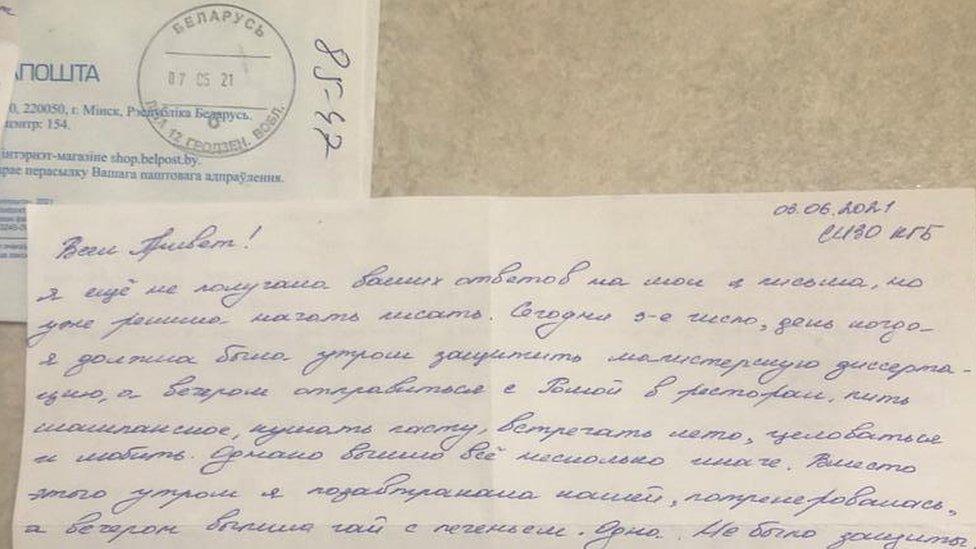 БЕЛАРУСЬ
07 05 21
12 ГРОДЗЕН. ВОБЛ.
85-47
АПОШТА
0, 220050, г. Мінск, Рэспубліка Беларусь.
цэнтр: 154.
інтэрнэт-магазіне shop.belpost.by.
перасылку Вашага паштовага адпраўлення.
06.06.2021
СИЗО КГБ
Всем Привет!
Я ещё не получала ваших ответов на мои письма, но
уже решила начать писать. Сегодня 3-е число, день когда
я должна была утром защитить магистерскую диссерта-
цию, а вечером отправиться с Ромой в ресторан, пить
шампанское, кушать пасту, встречать лето, целоваться
и любить. Однако вышло всё несколько иначе. Вместо
этого утром я позавтракала кашей, потренеровалась,
а вечером выпила чай с печеньем. Одна. Не было защиты